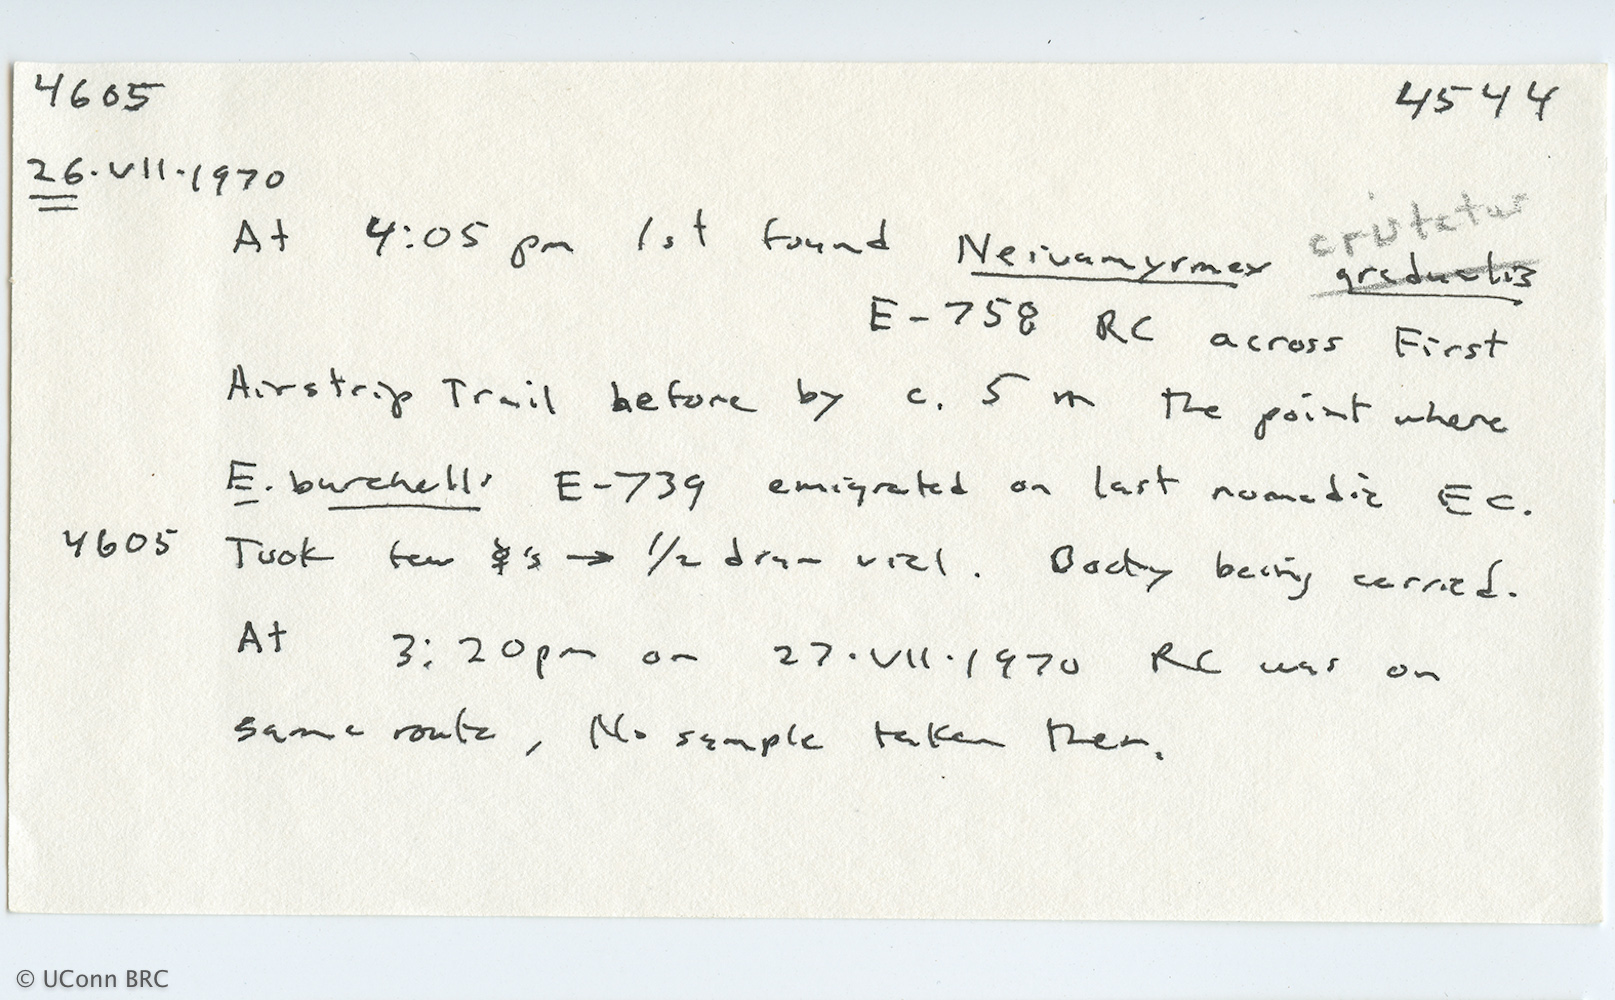 4605 4544
26.VII.1970
cristatus
At 4:05 pm 1st found Neivamyrmex gradualis
E-758 RC across First
Airstrip Trail before by c. 5 m the point where
E. burchelli E-739 emigrated on last nomadic EC.
4605 Took few ☿'s → 1/2 dram vial. Booty being carried.
At 3:20pm on 27.VII.1970 RC was on
same route, No sample taken then.
© UConn BRC